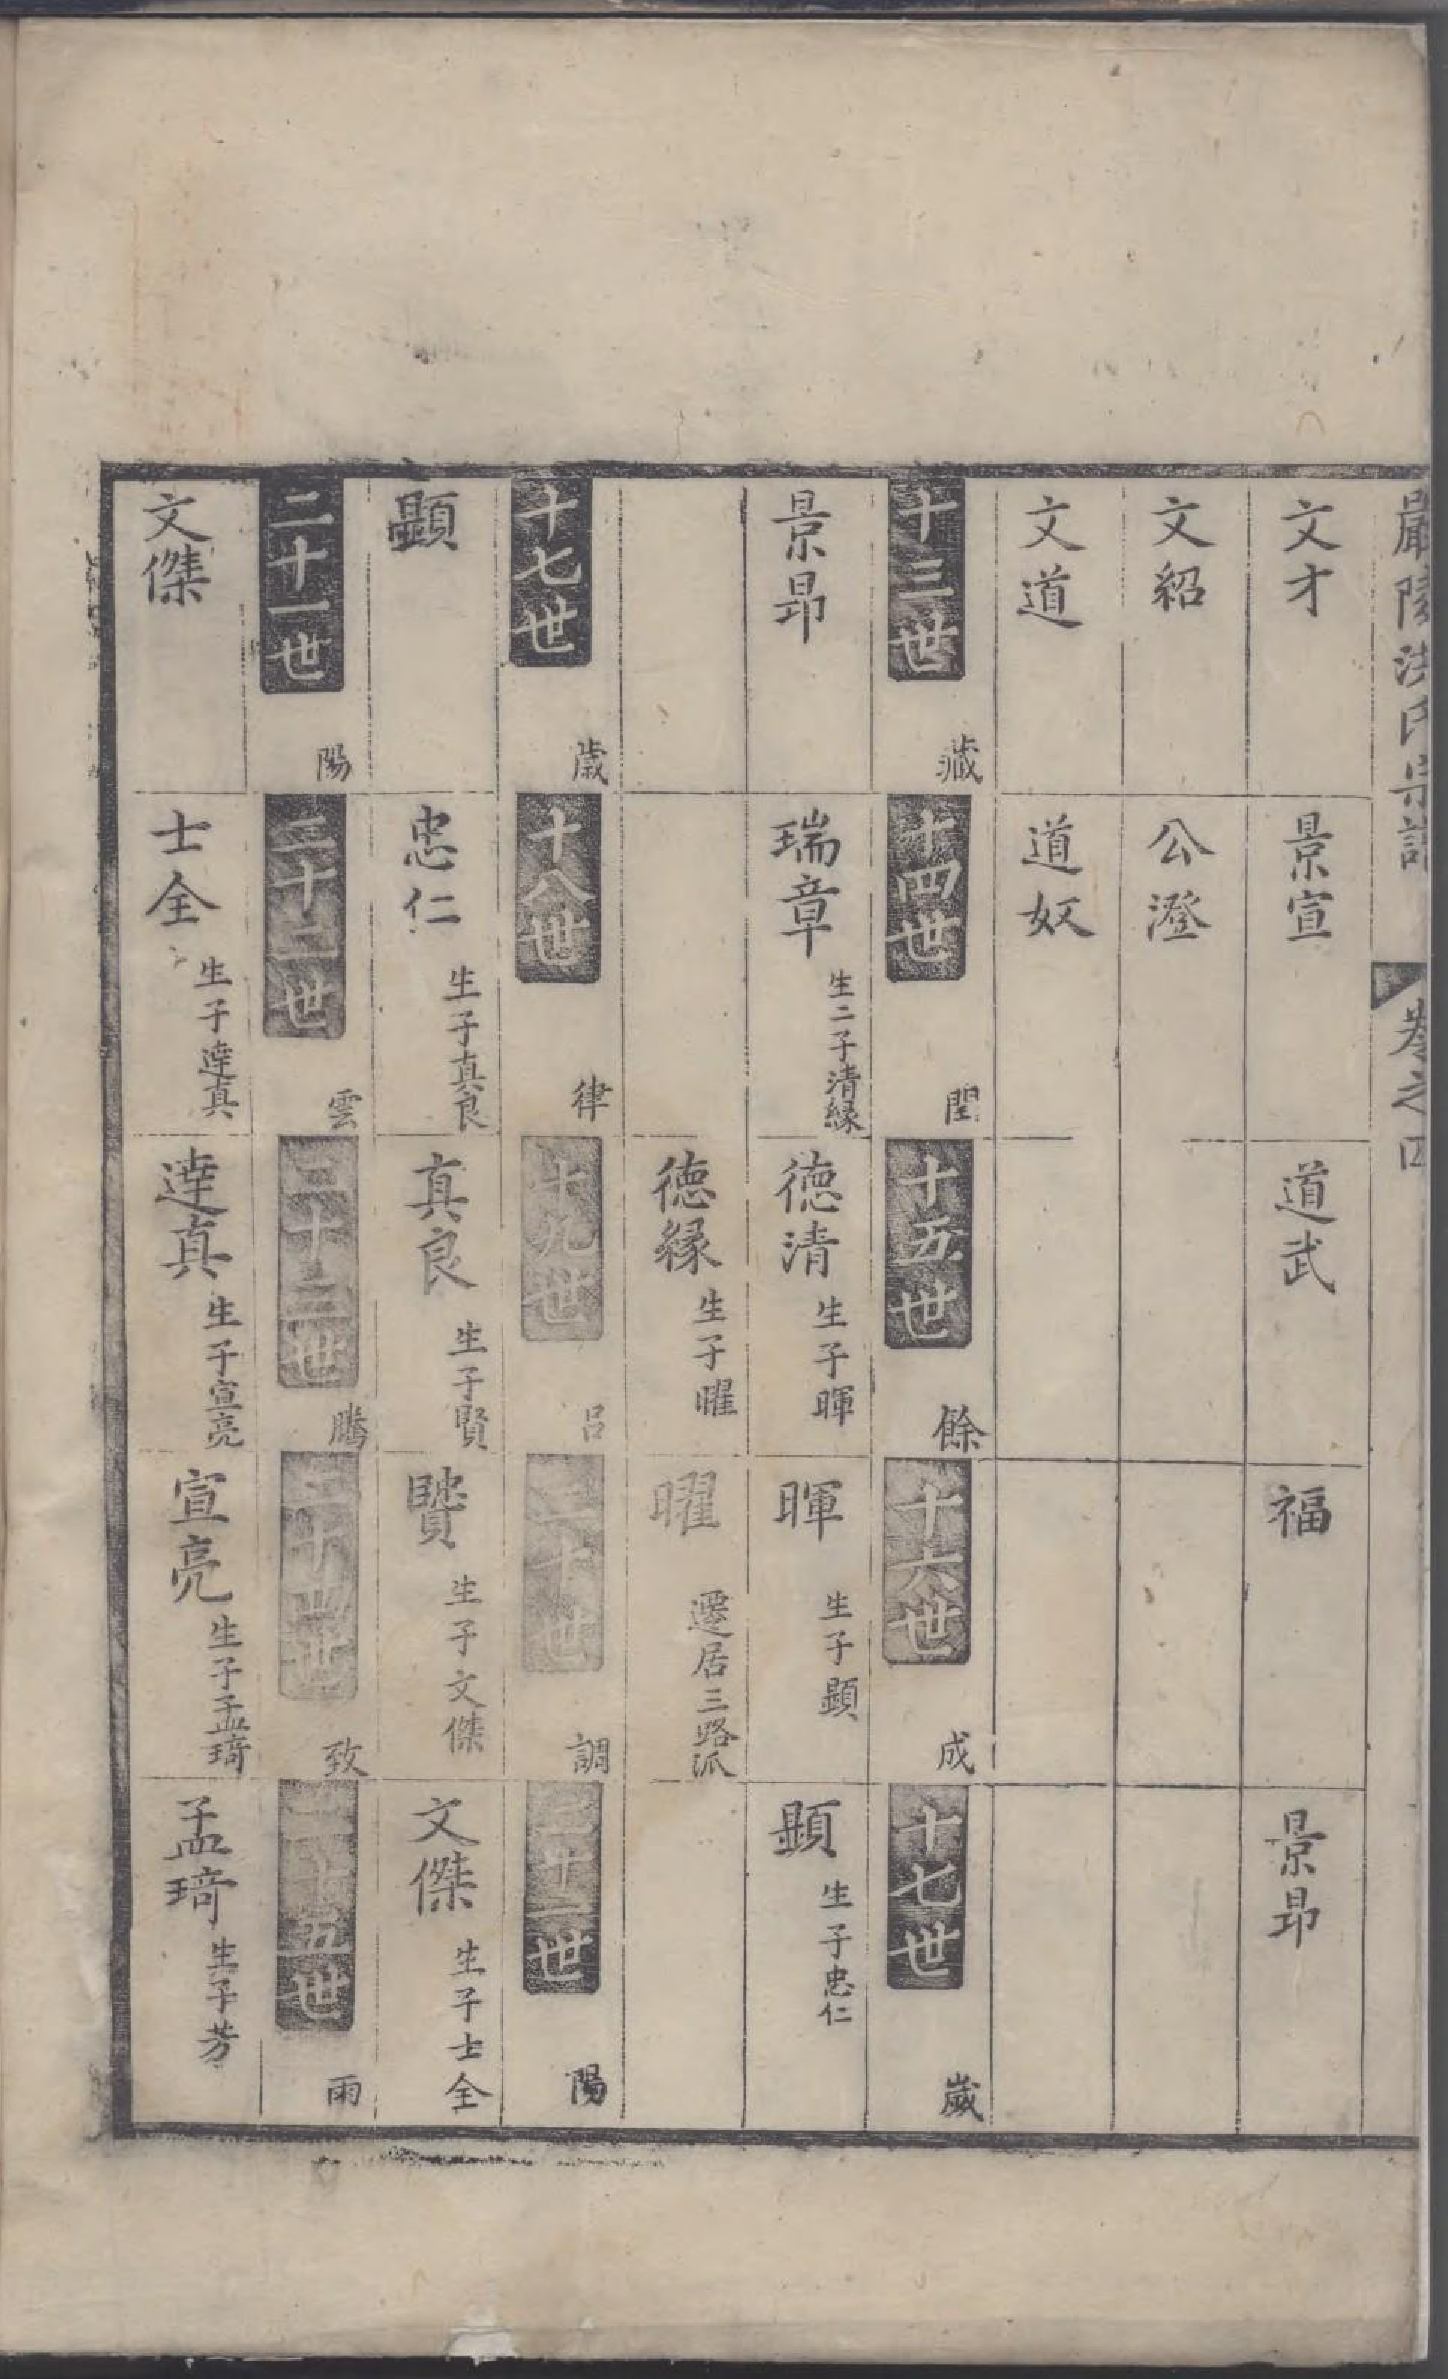 嚴陵洪氏宗譜 卷之四
文才 景宣 道武 福 景昂
文紹 公澄
文道 道奴
十三世 藏 十四世 閏 十五世 餘 十六世 成 十七世 歲
景昂 瑞章 生二子清緣 德清 生子暉 暉 生子顯 顯 生子忠仁
德緣 生子曜 曜 遷居三路派
十七世 歲 十八世 律 十九世 呂 二十世 調 二十一世 陽
顯 忠仁 生子真良 真良 生子賢 賢 生子文傑 文傑 生子士全
二十一世 陽 二十二世 雲 二十三世 騰 二十四世 致 二十五世 雨
文傑 士全 生子達真 達真 生子宣亮 宣亮 生子孟琦 孟琦 生子芳